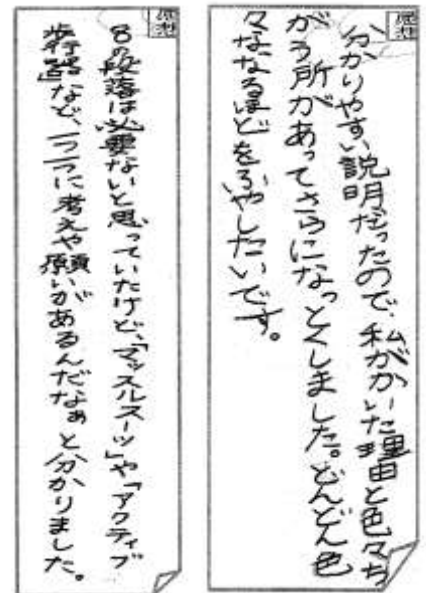 感想
分かりやすい説明だったので、私がかいた理由と色々ち
がう所があってさらになっとくしました。どんどん色
々ななるほどをふやしたいです。
感想
8の段落は必要ないと思っていたけど、「マッスルスーツ」や「アクティブ
歩行器」など、一つ一つに考えや願いがあるんだなぁと分かりました。